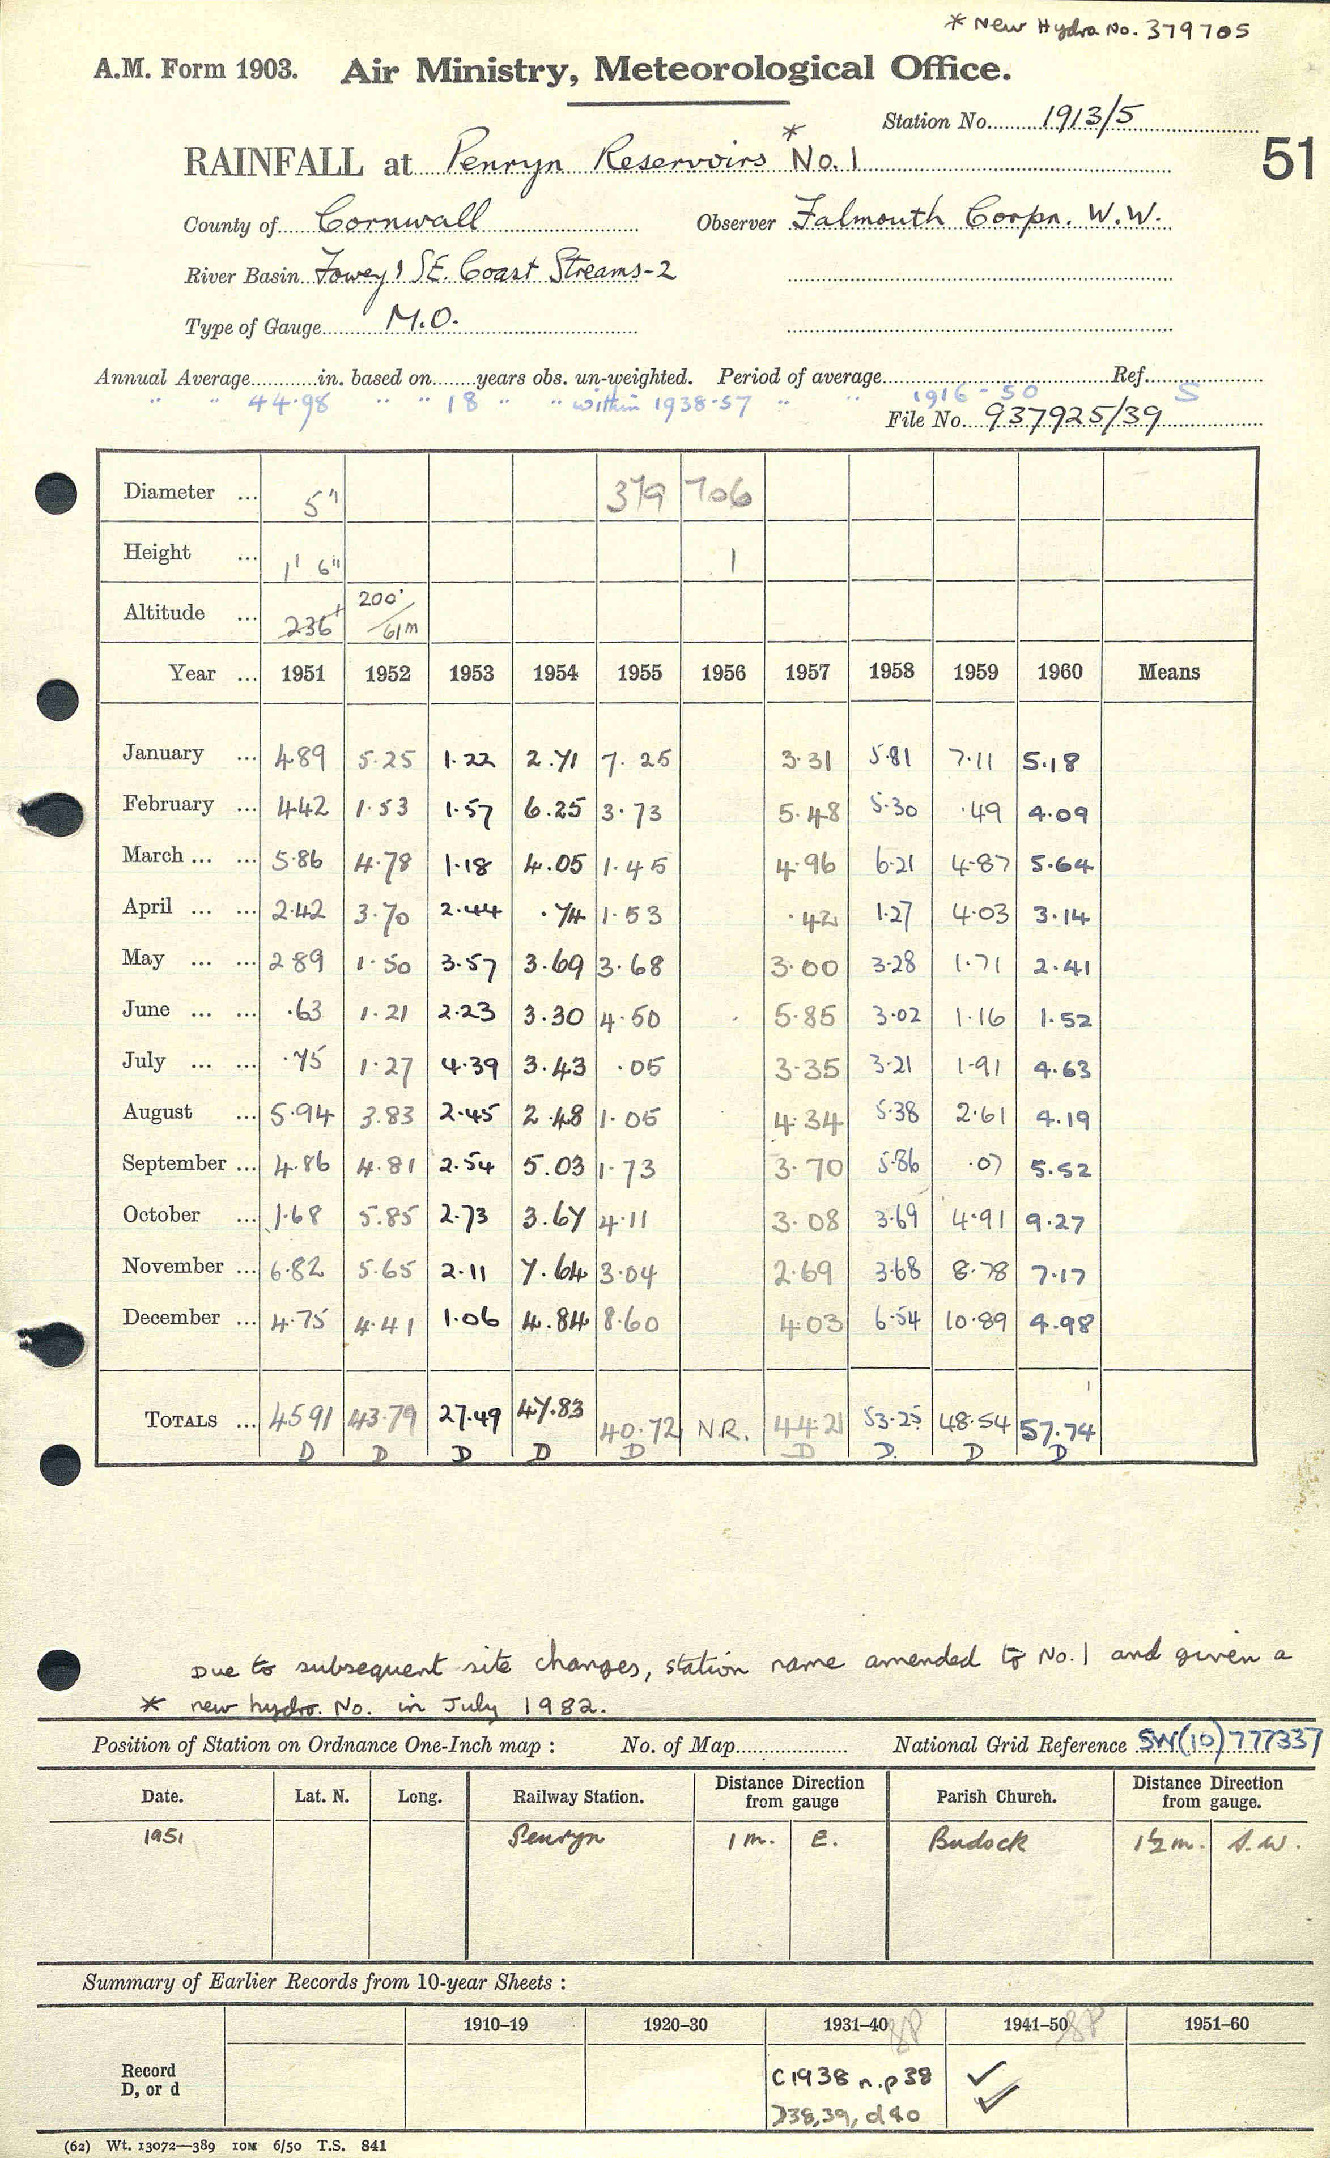 * New Hydro No. 379705
A.M. Form 1903. Air Ministry, Meteorological Office.
Station No. 1913/5
RAINFALL at Penryn Reservoirs * No. 1
51
County of Cornwall Observer Falmouth Corpn. W.W.
River Basin Fowey & SE. Coast Streams-2
Type of Gauge M.O.
Annual Average in. based on years obs. un-weighted. Period of average Ref.
" " 44.98 " " 18 " " within 1938-57 " " 1916-50 S
File No. 937925/39
Diameter ... 5" 379 706
Height ... 1' 6" 1
Altitude ... 236+ 200' / 61m
Year ... 1951 1952 1953 1954 1955 1956 1957 1958 1959 1960 Means
January ... 4.89 5.25 1.22 2.71 7.25 3.31 5.81 7.11 5.18
February ... 4.42 1.53 1.57 6.25 3.73 5.48 5.30 .49 4.09
March ... ... 5.86 4.78 1.18 4.05 1.45 4.96 6.21 4.87 5.64
April ... ... 2.42 3.70 2.44 .74 1.53 .42 1.27 4.03 3.14
May ... ... 2.89 1.50 3.57 3.69 3.68 3.00 3.28 1.71 2.41
June ... ... .63 1.21 2.23 3.30 4.50 5.85 3.02 1.16 1.52
July ... ... .75 1.27 4.39 3.43 .05 3.35 3.21 1.91 4.63
August ... 5.94 3.83 2.45 2.48 1.05 4.34 5.38 2.61 4.19
September ... 4.86 4.81 2.54 5.03 1.73 3.70 5.86 .07 5.52
October ... 1.68 5.85 2.73 3.67 4.11 3.08 3.69 4.91 9.27
November ... 6.82 5.65 2.11 7.64 3.04 2.69 3.68 8.78 7.17
December ... 4.75 4.41 1.06 4.84 8.60 4.03 6.54 10.89 4.98
TOTALS ... 45.91 43.79 27.49 47.83 40.72 N.R. 44.21 53.25 48.54 57.74
D D D D D D D. D D
Due to subsequent site changes, station name amended to No. 1 and given a
* new hydro. No. in July 1982.
Position of Station on Ordnance One-Inch map : No. of Map National Grid Reference SW(10)777337
Date. Lat. N. Long. Railway Station. Distance from gauge Direction Parish Church. Distance from gauge. Direction
1951 Penryn 1 m. E. Budock 1½ m. S.W.
Summary of Earlier Records from 10-year Sheets :
1910–19 1920–30 1931–40 1941–50 1951–60
Record D, or d C1938 n.p38 ✓
D38,39, d40 ✓
(62) Wt. 13072—389 IOM 6/50 T.S. 841